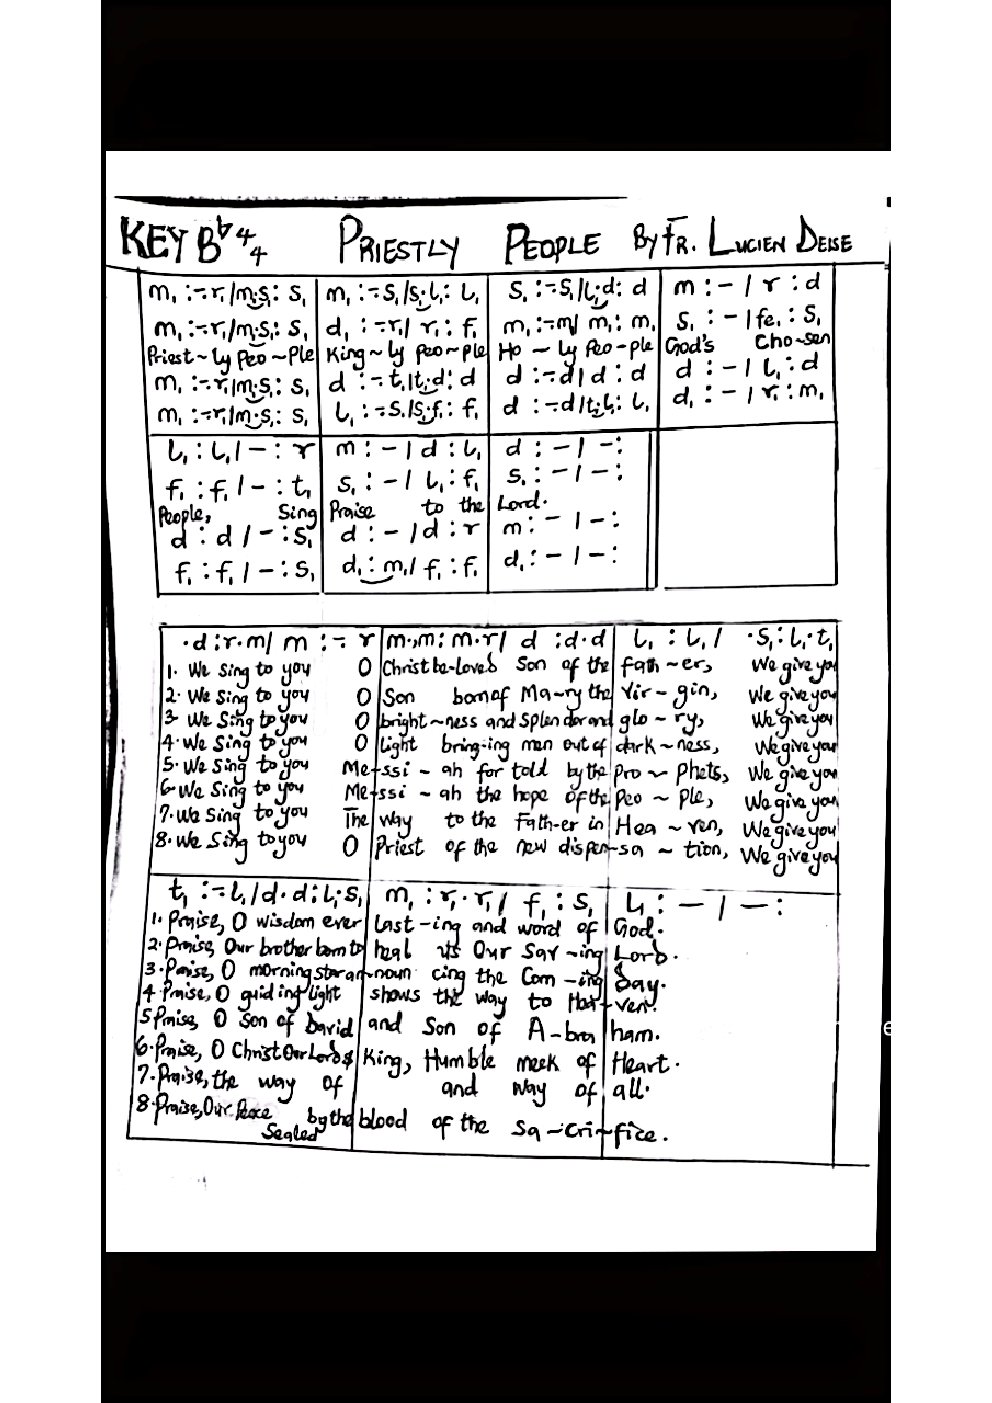 KEY B♭ 4/4 PRIESTLY PEOPLE By FR. LUCIEN DEISE
m₁ :-.r₁/m₁.s₁: s₁ | m₁ :-.s₁/s₁.l₁: l₁ | s₁ :-.s₁/l₁.d: d | m : - / r : d
m₁ :-.r₁/m₁.s₁: s₁ | d₁ :-.r₁/ r₁ : f₁ | m₁ :-.m₁/ m₁ : m₁ | s₁ : - / fe₁ : s₁
Priest~ly Peo~ple | King~ly Peo~ple | Ho - ly Peo-ple | God's Cho-sen
m₁ :-.r₁/m₁.s₁: s₁ | d :-.t₁/t₁.d: d | d :-.d/ d : d | d : - / l₁ : d
m₁ :-.r₁/m₁.s₁: s₁ | l₁ :-.s₁/s₁.f₁: f₁ | d :-.d/t₁.l₁: l₁ | d₁ : - / r₁ : m₁
l₁ : l₁ / - : r | m : - / d : l₁ | d : - / - :
f₁ : f₁ / - : t₁ | s₁ : - / l₁ : f₁ | s₁ : - / - :
People, Sing | Praise to the | Lord.
d : d / - : s₁ | d : - / d : r | m : - / - :
f₁ : f₁ / - : s₁ | d₁ : m₁ / f₁ : f₁ | d₁ : - / - :
.d :r.m/ m :-. r | m.,m: m.r/ d :d.d | l₁ : l₁ / .s₁ : l₁.t₁
1. We Sing to you O | Christ be-loved Son of the | fath~er, We give you
2. We Sing to you O | Son born of Ma~ry the | Vir-gin, We give you
3. We Sing to you O | bright~ness and Splendor and | glo~ry, We give you
4. We Sing to you O | Light bring-ing men out of | dark~ness, We give you
5. We Sing to you Me-ssi - ah for told by the | Pro~Phets, We give you
6. We Sing to you Me-ssi ~ ah the hope of the | Peo ~ ple, We give you
7. We Sing to you The | way to the Fath-er in | Hea ~ ven, We give you
8. We Sing to you O | Priest of the new dispen-sa ~ tion, We give you
t₁ :-.l₁/d.d:l₁.s₁ | m₁ : r₁.r₁/ f₁ : s₁ | l₁ : - / - :
1. Praise, O wisdom ever | last-ing and word of | God.
2. Praise, Our brother born to | heal us Our Sav-ing | Lord.
3. Praise, O morning star an-noun cing the Com-ing | day.
4 Praise, O guiding light | shows the way to Hea-ven.
5 Praise, O Son of David | and Son of A-bra | ham.
6. Praise, O Christ Our Lord & | King, Humble meek of | Heart.
7. Praise, the way of | and way of | all.
8. Praise, Our Peace Sealed by the | blood of the Sa-cri-fice.